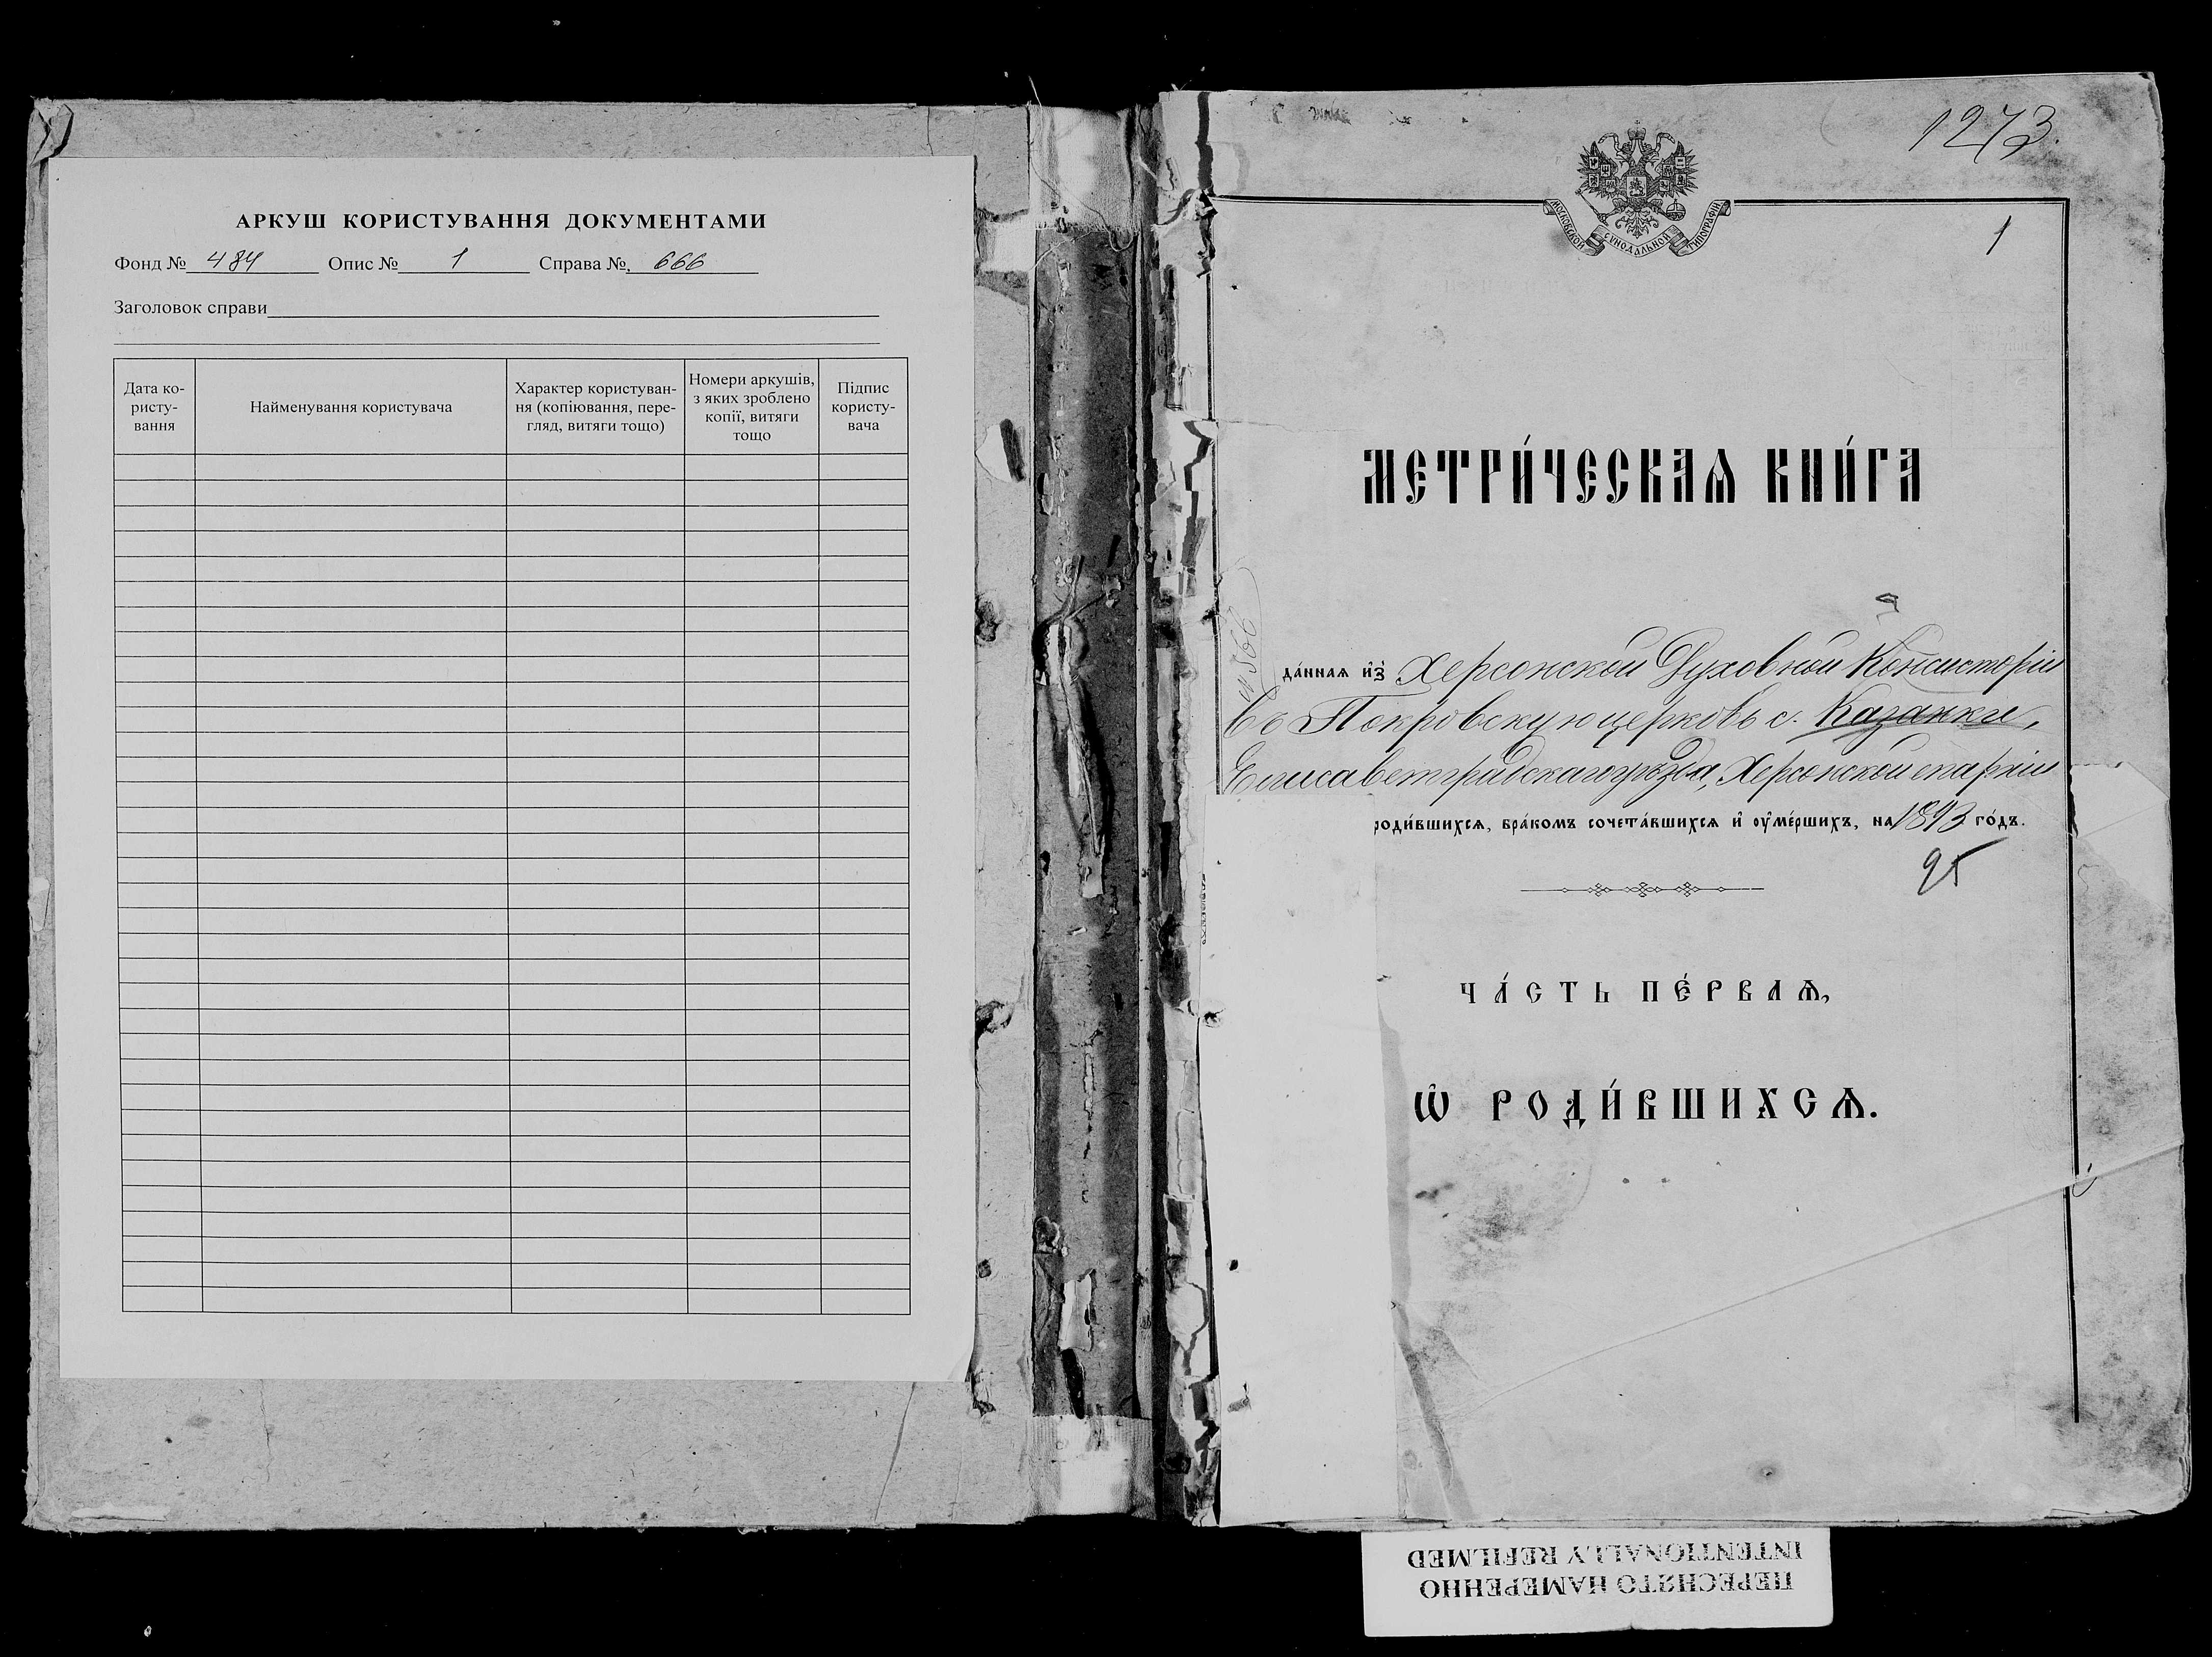 АРКУШ КОРИСТУВАННЯ ДОКУМЕНТАМИ
Фонд № 484 Опис № 1 Справа № 666
Заголовок справи
Дата ко-
ристу-
вання
Найменування користувача
Характер користуван-
ня (копіювання, пере-
гляд, витяги тощо)
Номери аркушів,
з яких зроблено
копії, витяги
тощо
Підпис
користу-
вача
1273.
МОСКОВСКОЙ СѴНОДАЛЬНОЙ ТИПОГРАФІИ
1
МЕТРИ́ЧЕСКАѦ КНИ́ГА
да́ннаѧ и҆з̾ Херсонской Духовной Консисторіи
Въ Покровскую церковь с. Казанки,
Елисаветградскаго уѣзда, Херсонской епархіи
роди́вшихсѧ, бра́комъ сочета́вшихсѧ и҆ ѹ҆ме́ршихъ, на 1893 го́дъ.
95
ЧА́СТЬ ПЕ́РВАѦ,
Ѡ҆ РОДИ́ВШИХСѦ.
ПЕРЕСНЯТО НАМЕРЕННО
INTENTIONALLY REFILMED